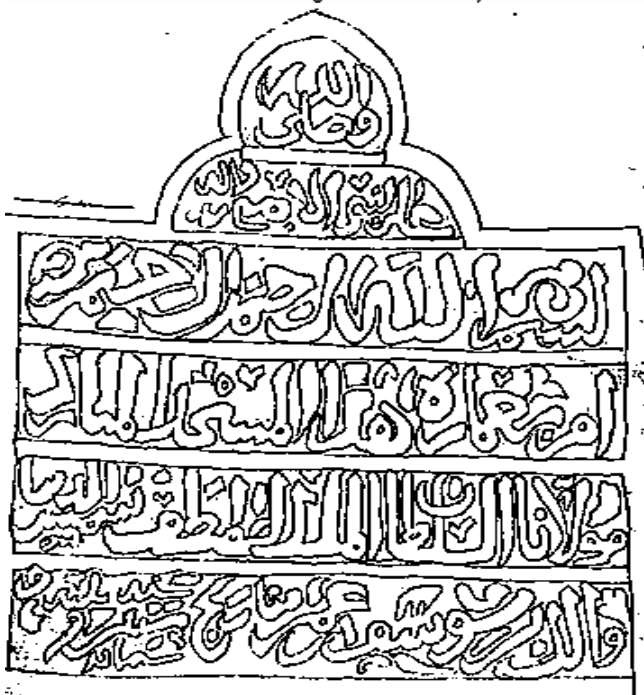 وصلى الله
على النبي الامي واله
بسم الله الرحمن الرحيم
امر بعمارة هذا المسجد المبارك
مولانا السلطان الملك المظفر شمس الدنيا
والدين يوسف بن عمر